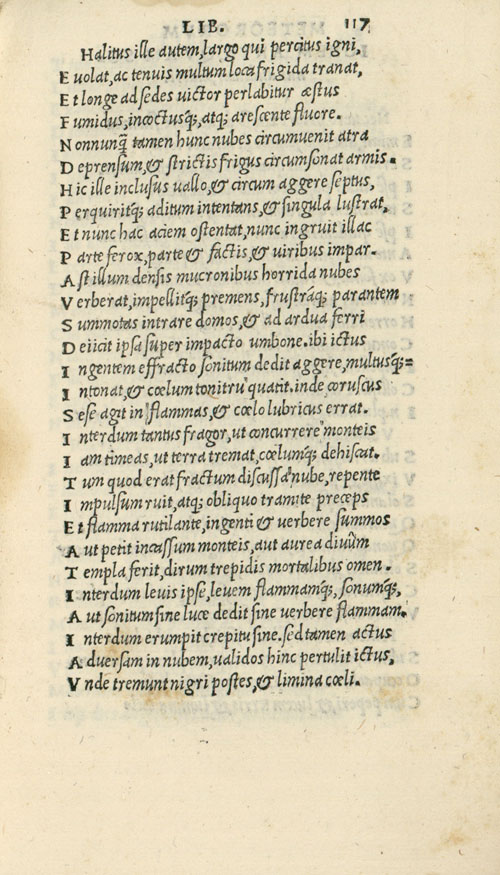 LIB. 117
Halitus ille autem, largo qui percitus igni,
E uolat, ac tenuis multum loca frigida tranat,
E t longe ad sedes uictor perlabitur æstus
F umidus, incoctusq́;, atq; arescente fluore.
N onnunq̃ tamen hunc nubes circumuenit atra
D eprensum, & strictis frigus circumsonat armis.
H ic ille inclusus uallo, & circum aggere septus,
P erquiritq́; aditum intentans, & singula lustrat,
E t nunc hac aciem ostentat, nunc ingruit illac
P arte ferox, parte & factis, & uiribus impar.
A st illum densis mucronibus horrida nubes
V erberat, impellitq́; premens, frustráq; parantem
S ummotas intrare domos, & ad ardua ferri
D eiicit ipsa super impacto umbone. ibi ictus
I ngentem effracto sonitum dedit aggere, multusq́;=
I ntonat, & cœlum tonitru quatit. inde coruscus
S ese agit in flammas, & cœlo lubricus errat.
I nterdum tantus fragor, ut concurrere monteis
I am timeas, ut terra tremat, cœlumq́; dehiscat.
T um quod erat fractum discussa nube, repente
I mpulsum ruit, atq; obliquo tramite præceps
E t flamma rutilante, ingenti & uerbere summos
A ut petit incassum monteis, aut aurea diuûm
T empla ferit, dirum trepidis mortalibus omen.
I nterdum leuis ipse, leuem flammamq́;, sonumq́;,
A ut sonitum sine luce dedit sine uerbere flammam.
I nterdum erumpit crepitu sine. sed tamen actus
A duersam in nubem, ualidos hinc pertulit ictus,
V nde tremunt nigri postes, & limina cœli.